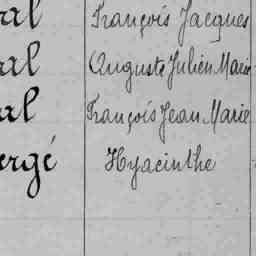 al François Jacques
al Auguste Julien Marie
al François Jean Marie
ergé Hyacinthe